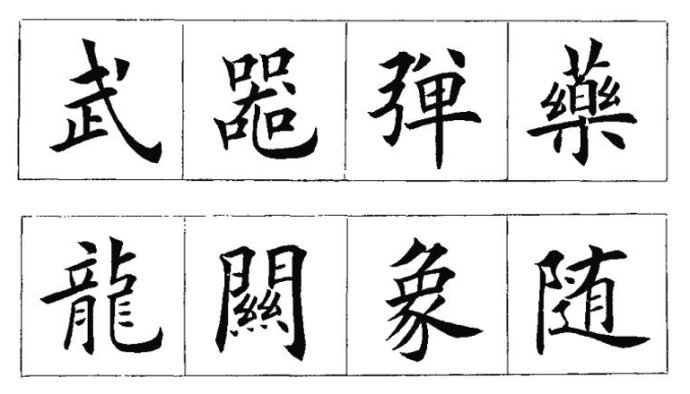 武器彈藥
龍關象随